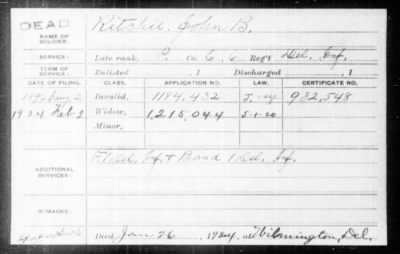 DEAD
NAME OF SOLDIER: Ritchie, John B.
SERVICE: Late rank, P. Co. E, C Reg't Del. Inf.
TERM OF SERVICE: Enlisted , 1 Discharged , 1
DATE OF FILING. CLASS. APPLICATION NO. LAW. CERTIFICATE NO.
1896 Aug 2 Invalid, 1184,432 J.-14 932,548
1924 Feb 2 Widow, 1,215,044 5-1-20
Minor,
ADDITIONAL SERVICES: F Del. Inf. & Band 1 Del. Inf.
REMARKS:
Died Jan 26, 1924, at Wilmington, Del.